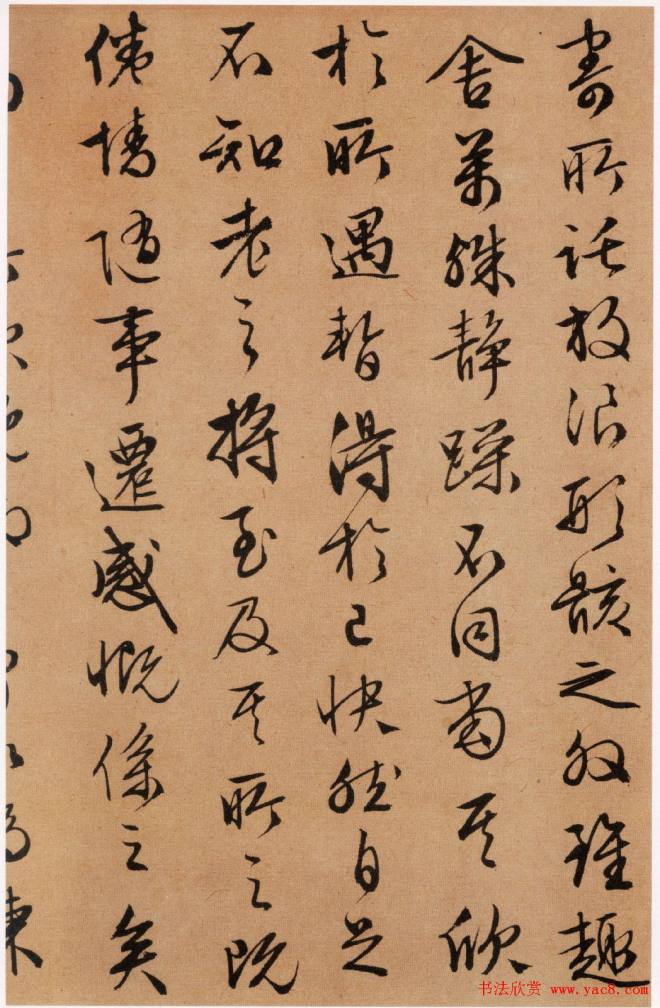 寄所託放浪形骸之外雖趣
舍萬殊靜躁不同當其欣
於所遇暫得於己快然自足
不知老之將至及其所之既
倦情隨事遷感慨係之矣
书法欣赏 www.yac8.com